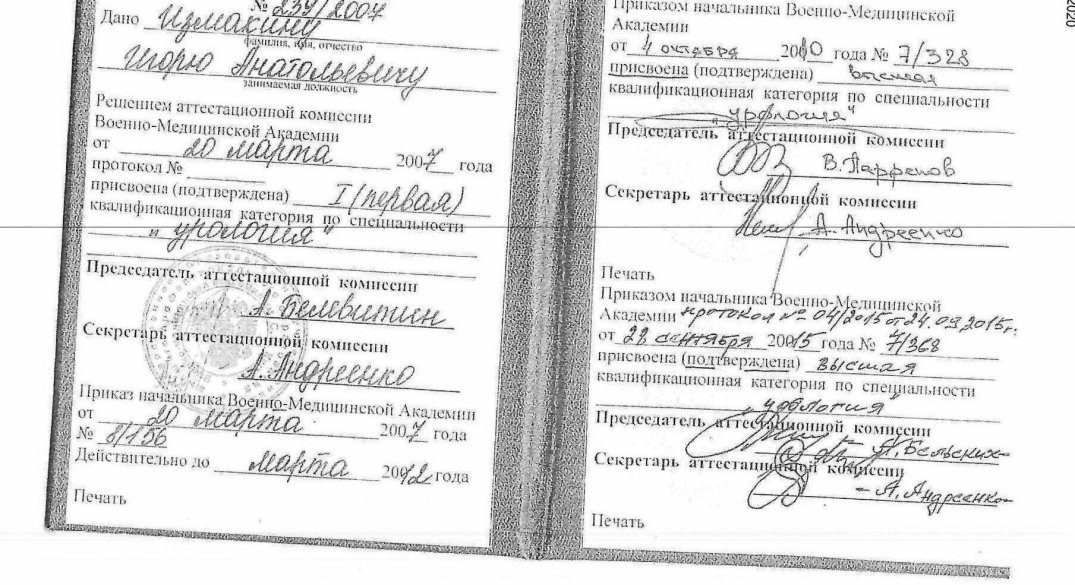 № 239/2007
Дано Измакину
фамилия, имя, отчество
Игорю Анатольевичу
занимаемая должность
Решением аттестационной комиссии
Военно-Медицинской Академии
от 20 марта 2007 года
протокол №
присвоена (подтверждена) I (первая)
квалификационная категория по специальности
„урология"
Председатель аттестационной комиссии
А. Белевитин
Секретарь аттестационной комиссии
А. Андреенко
Приказ начальника Военно-Медицинской Академии
от 20 марта 2007 года
№ 8/156
Действительно до марта 2012 года
Печать
Приказом начальника Военно-Медицинской
Академии
от 4 октября 2010 года № 7/328
присвоена (подтверждена) высшая
квалификационная категория по специальности
„урология"
Председатель аттестационной комиссии
В. Парфенов
Секретарь аттестационной комиссии
А. Андреенко
Печать
Приказом начальника Военно-Медицинской
Академии протокол № 04/2015 от 24.09.2015г.
от 28 сентября 2015 года № 7/368
присвоена (подтверждена) высшая
квалификационная категория по специальности
„урология"
Председатель аттестационной комиссии
А. Бельских
Секретарь аттестационной комиссии
А. Андреенко
Печать
2020